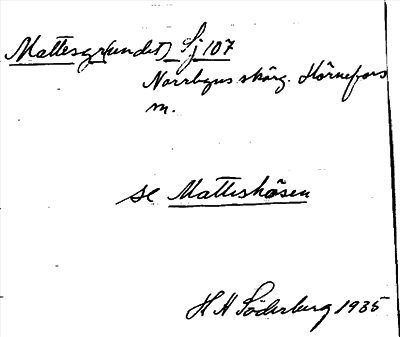 Mattesgr(undet) Sj 107
Norrbyns skärg. Hörnefors
m.
se Matteshäsen
H H Söderberg 1935